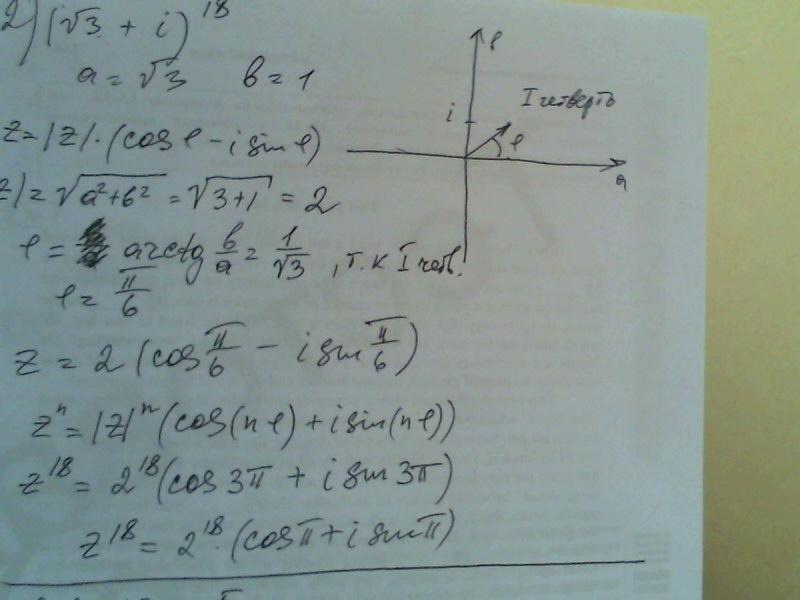 2) (√3 + i)^18
a = √3 b = 1
z = |z| · (cos φ - i sin φ)
z| = √(a²+b²) = √(3+1) = 2
φ = arctg b/a = 1/√3 , т.к I четв.
φ = π/6
z = 2 (cos π/6 - i sin π/6)
z^n = |z|^n (cos(nφ) + i sin(nφ))
z^18 = 2^18 (cos 3π + i sin 3π)
z^18 = 2^18 · (cos π + i sin π)
в
i
I четверть
φ
a